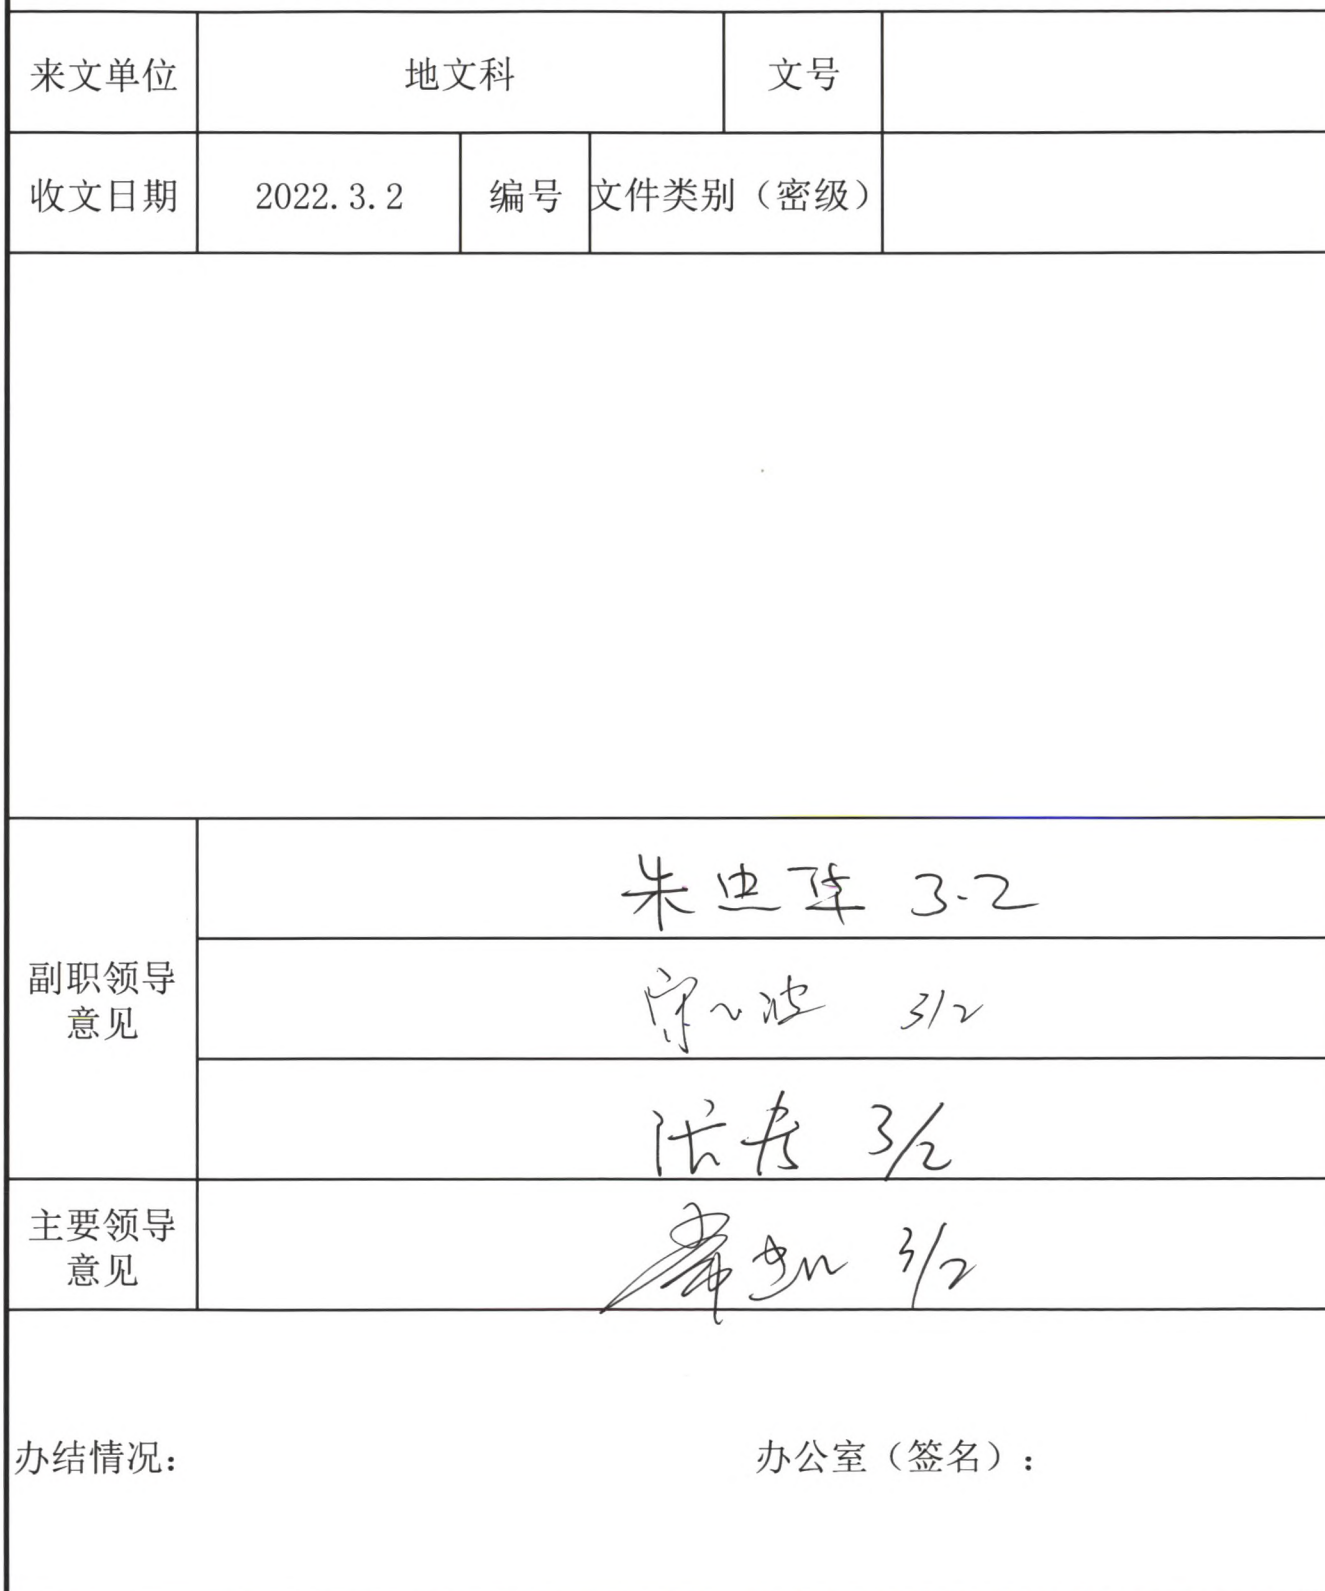 来文单位 地文科 文号
收文日期 2022.3.2 编号 文件类别（密级）
朱忠华 3-2
副职领导
意见
3/2
张 3/2
主要领导
意见
3/2
办结情况： 办公室（签名）：